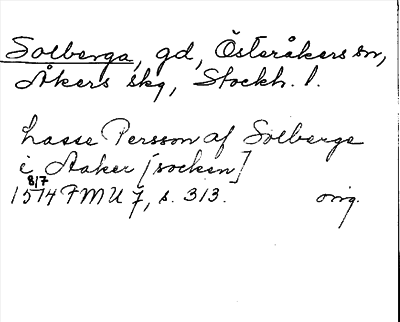 Solberga, gd, Österåkers sn,
Åkers skg, Stockh. l.
Lasse Persson af Solberge
i Aaker [socken]
8/7
1514 FMU 7, s. 313. orig.